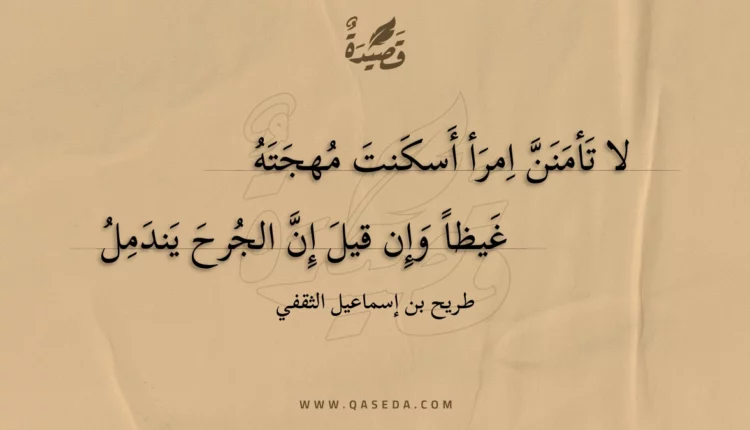 قَصِيْدَةٌ
لا تَأمَنَنَّ اِمرَأ أَسكَنتَ مُهجَتَهُ
غَيظاً وَإِن قيلَ إِنَّ الجُرحَ يَندَمِلُ
طريح بن إسماعيل الثقفي
WWW.QASEDA.COM